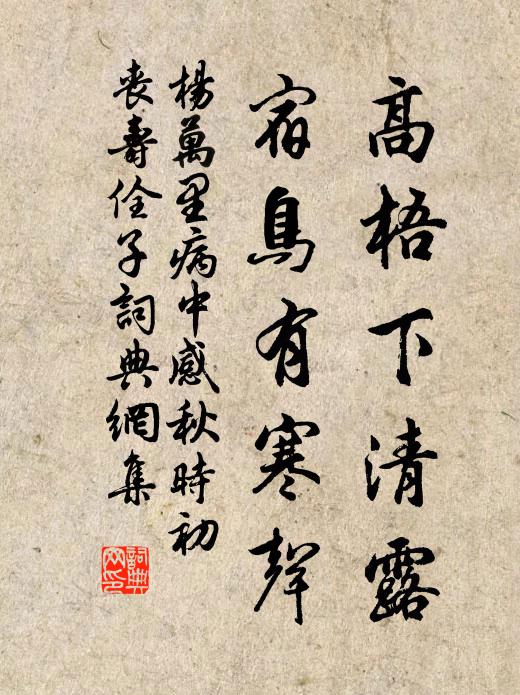 高梧下清露
宿鳥有寒聲
楊萬里病中感秋時初
喪壽佺子詞典網集
詞典網印